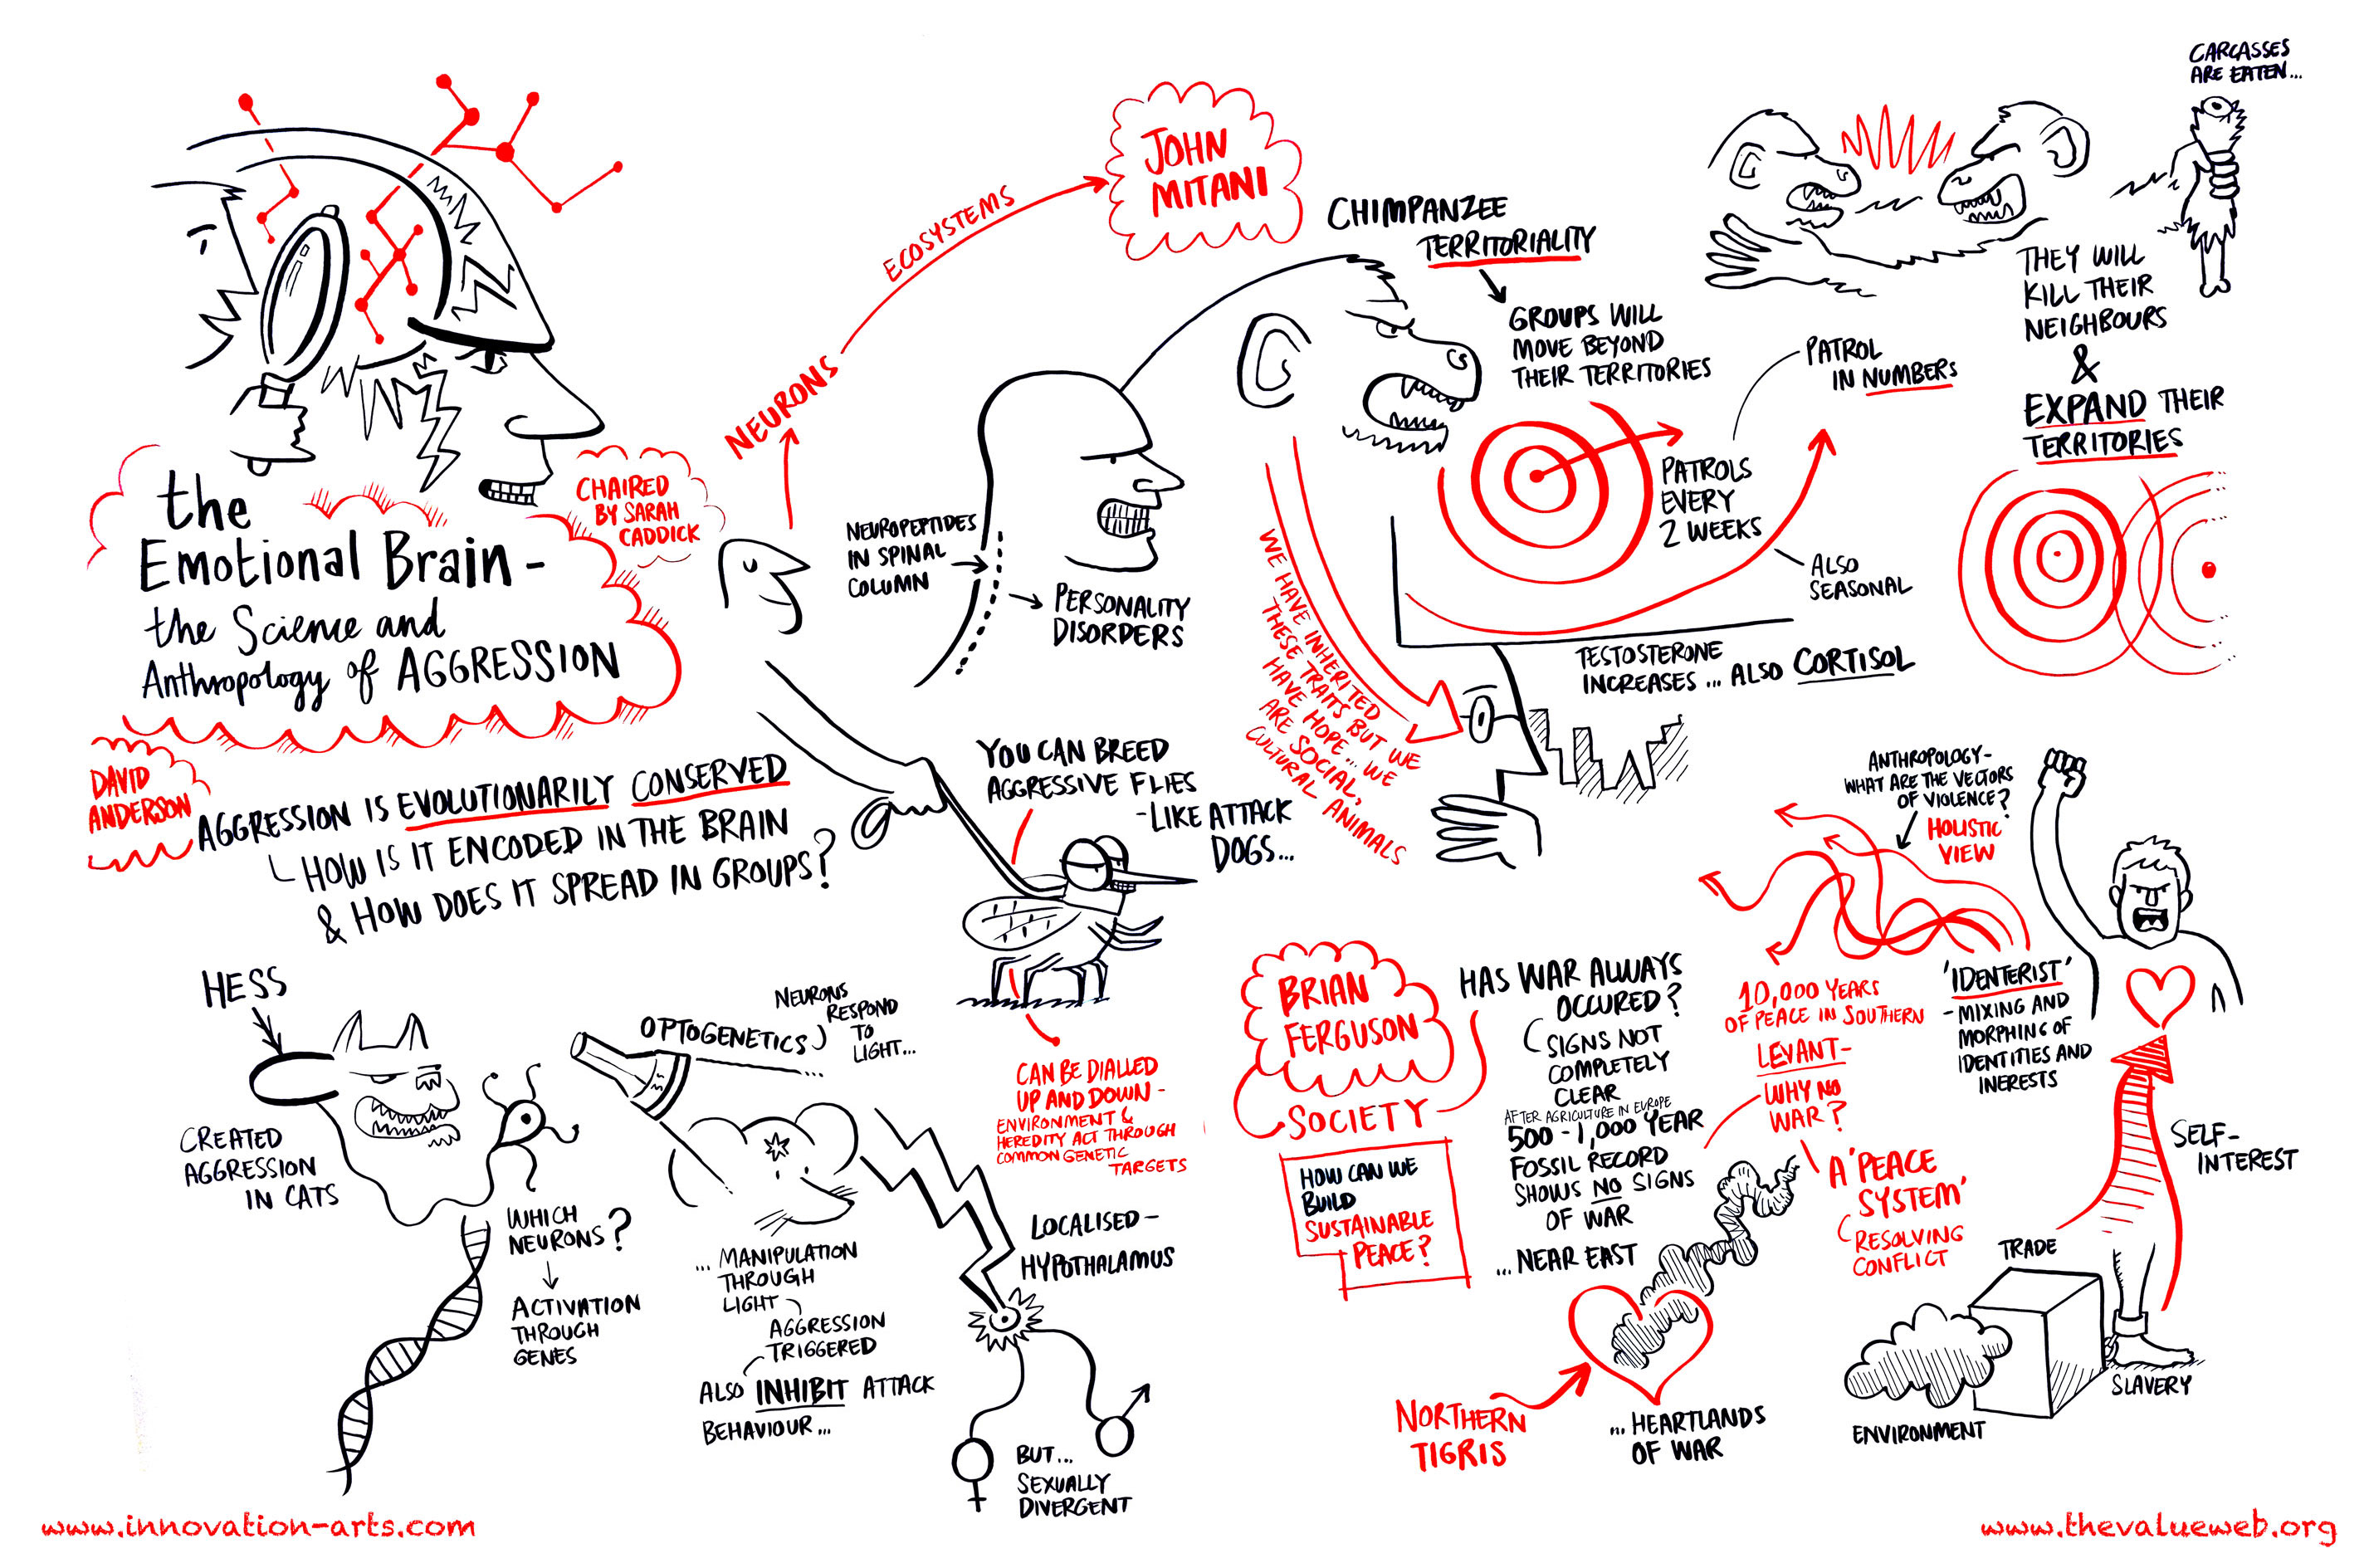 the
Emotional Brain -
the Science and
Anthropology of AGGRESSION
CHAIRED
BY SARAH
CADDICK
DAVID
ANDERSON
AGGRESSION IS EVOLUTIONARILY CONSERVED
HOW IS IT ENCODED IN THE BRAIN
& HOW DOES IT SPREAD IN GROUPS?
HESS
CREATED
AGGRESSION
IN CATS
WHICH
NEURONS?
ACTIVATION
THROUGH
GENES
OPTOGENETICS
NEURONS
RESPOND
TO
LIGHT...
... MANIPULATION
THROUGH
LIGHT
AGGRESSION
TRIGGERED
ALSO INHIBIT ATTACK
BEHAVIOUR...
LOCALISED -
HYPOTHALAMUS
BUT...
SEXUALLY
DIVERGENT
YOU CAN BREED
AGGRESSIVE FLIES
- LIKE ATTACK
DOGS...
CAN BE DIALLED
UP AND DOWN -
ENVIRONMENT &
HEREDITY ACT THROUGH
COMMON GENETIC
TARGETS
NEURONS
ECOSYSTEMS
JOHN
MITANI
NEUROPEPTIDES
IN SPINAL
COLUMN
PERSONALITY
DISORDERS
CHIMPANZEE
TERRITORIALITY
GROUPS WILL
MOVE BEYOND
THEIR TERRITORIES
PATROL
IN NUMBERS
PATROLS
EVERY
2 WEEKS
ALSO
SEASONAL
TESTOSTERONE
INCREASES ... ALSO CORTISOL
CARCASSES
ARE EATEN...
THEY WILL
KILL THEIR
NEIGHBOURS
&
EXPAND THEIR
TERRITORIES
WE HAVE INHERITED
THESE TRAITS BUT WE
HAVE HOPE... WE
ARE SOCIAL,
CULTURAL ANIMALS
BRIAN
FERGUSON
SOCIETY
HOW CAN WE
BUILD
SUSTAINABLE
PEACE?
HAS WAR ALWAYS
OCCURED?
SIGNS NOT
COMPLETELY
CLEAR
AFTER AGRICULTURE IN EUROPE
500 - 1,000 YEAR
FOSSIL RECORD
SHOWS NO SIGNS
OF WAR
... NEAR EAST
NORTHERN
TIGRIS
... HEARTLANDS
OF WAR
10,000 YEARS
OF PEACE IN SOUTHERN
LEVANT -
WHY NO
WAR?
A 'PEACE
SYSTEM'
RESOLVING
CONFLICT
ANTHROPOLOGY -
WHAT ARE THE VECTORS
OF VIOLENCE?
HOLISTIC
VIEW
'IDENTERIST'
- MIXING AND
MORPHING OF
IDENTITIES AND
INERESTS
SELF-
INTEREST
TRADE
SLAVERY
ENVIRONMENT
www.innovation-arts.com
www.thevalueweb.org